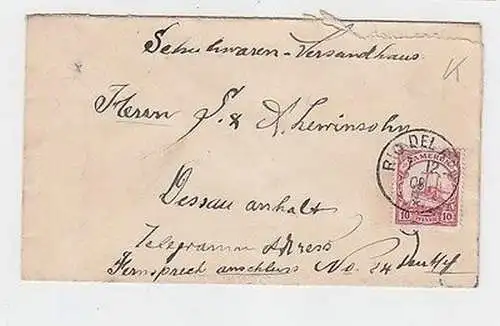 Schuhwaren-Versandhaus
Herrn S. & A. Lewinsohn
Dessau anhalt
Telegramm Adress
Fernsprech anschluss No. 24
RIO DEL REY
12
08
KAMERUN
10 10